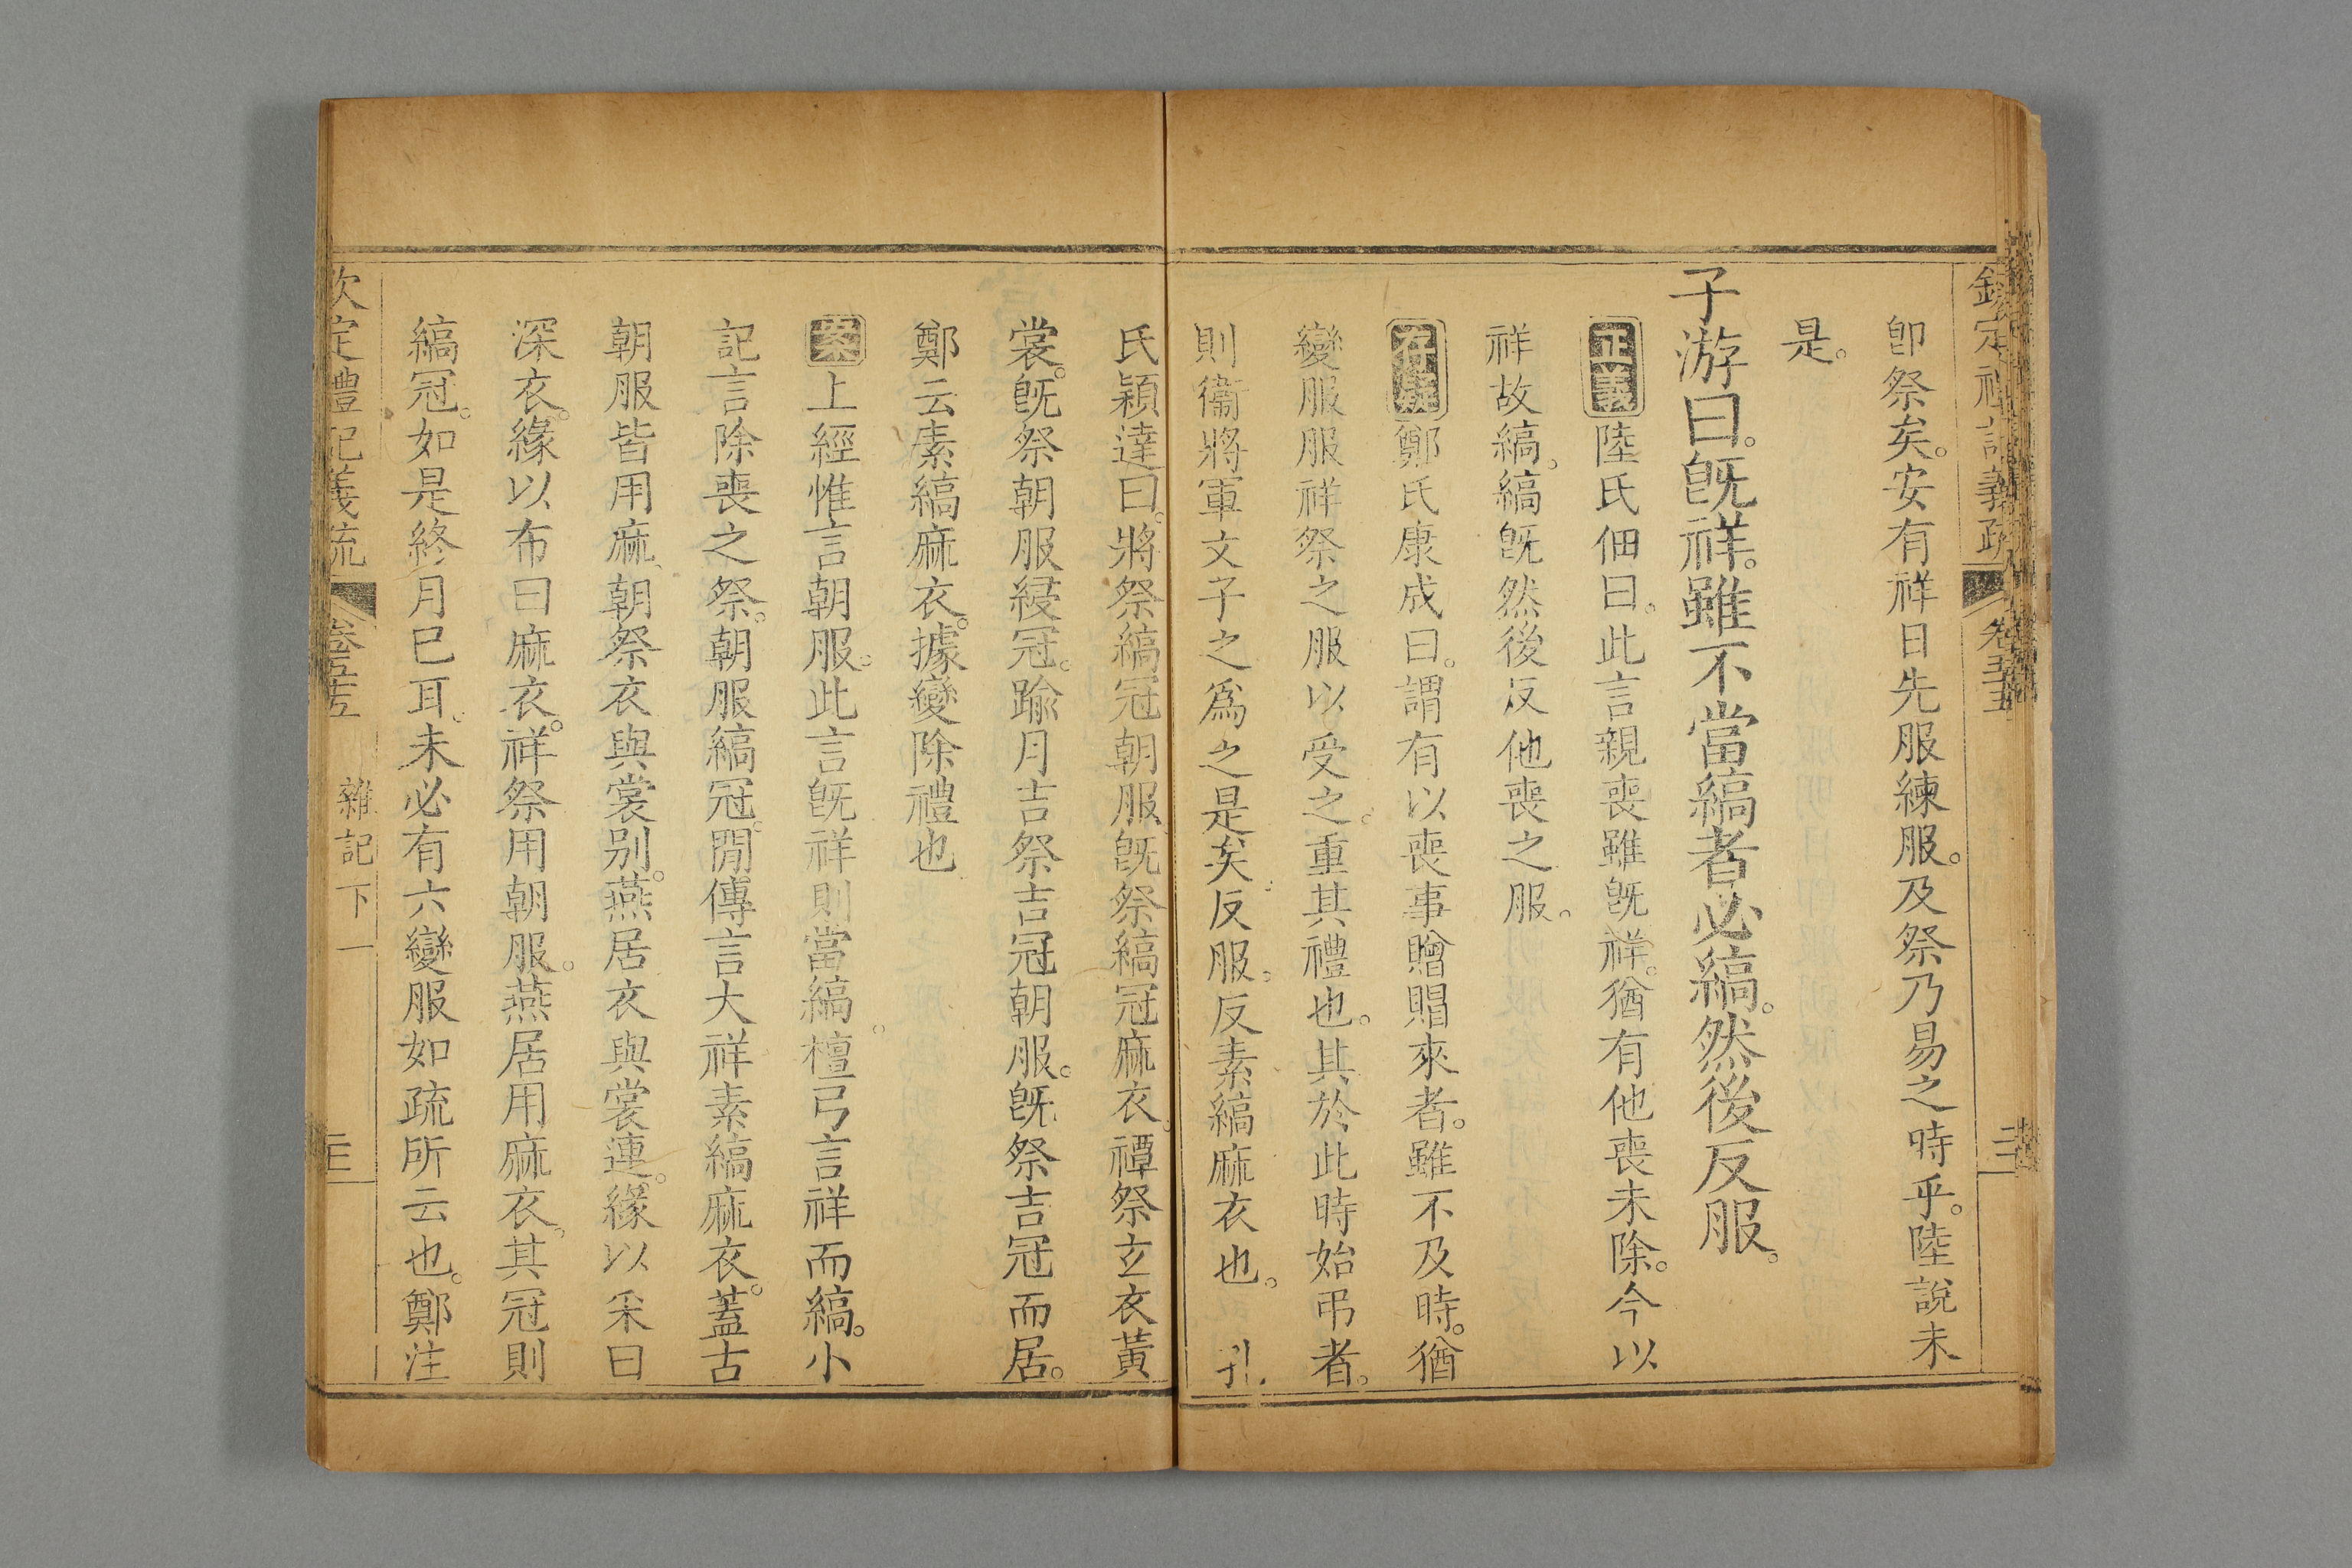 卽祭矣。安有祥日先服練服。及祭乃易之時乎。陸說未
是。
子游曰。旣祥。雖不當縞者必縞。然後反服。
正義陸氏佃曰。此言親喪雖旣祥。猶有他喪未除。今以
祥故縞。縞旣然後反他喪之服。
存疑鄭氏康成曰。謂有以喪事贈賵來者。雖不及時。猶
變服服祥祭之服以受之。重其禮也。其於此時始弔者。
則衞將軍文子之爲之是矣。反服。反素縞麻衣也。 孔
氏穎達曰。將祭縞冠朝服。旣祭縞冠麻衣。禫祭玄衣黃
裳。旣祭朝服綅冠。踰月吉祭吉冠朝服。旣祭吉冠而居。
鄭云素縞麻衣。據變除禮也
案上經惟言朝服。此言旣祥則當縞。檀弓言祥而縞。小
記言除喪之祭。朝服縞冠。閒傳言大祥素縞麻衣。蓋古
朝服皆用麻、朝祭衣與裳别。燕居衣與裳連。緣以采曰
深衣。緣以布曰麻衣。祥祭用朝服。燕居用麻衣。其冠則
縞冠。如是終月巳耳。未必有六變服如疏所云也。鄭注
欽定禮記義疏 雜記下一